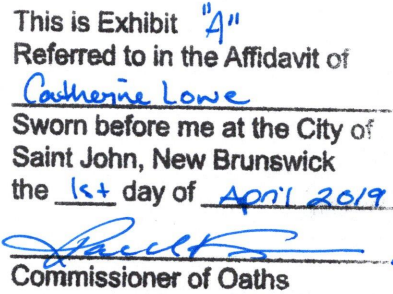 This is Exhibit "A"
Referred to in the Affidavit of
Catherine Lowe
Sworn before me at the City of
Saint John, New Brunswick
the 1st day of April 2019
Commissioner of Oaths